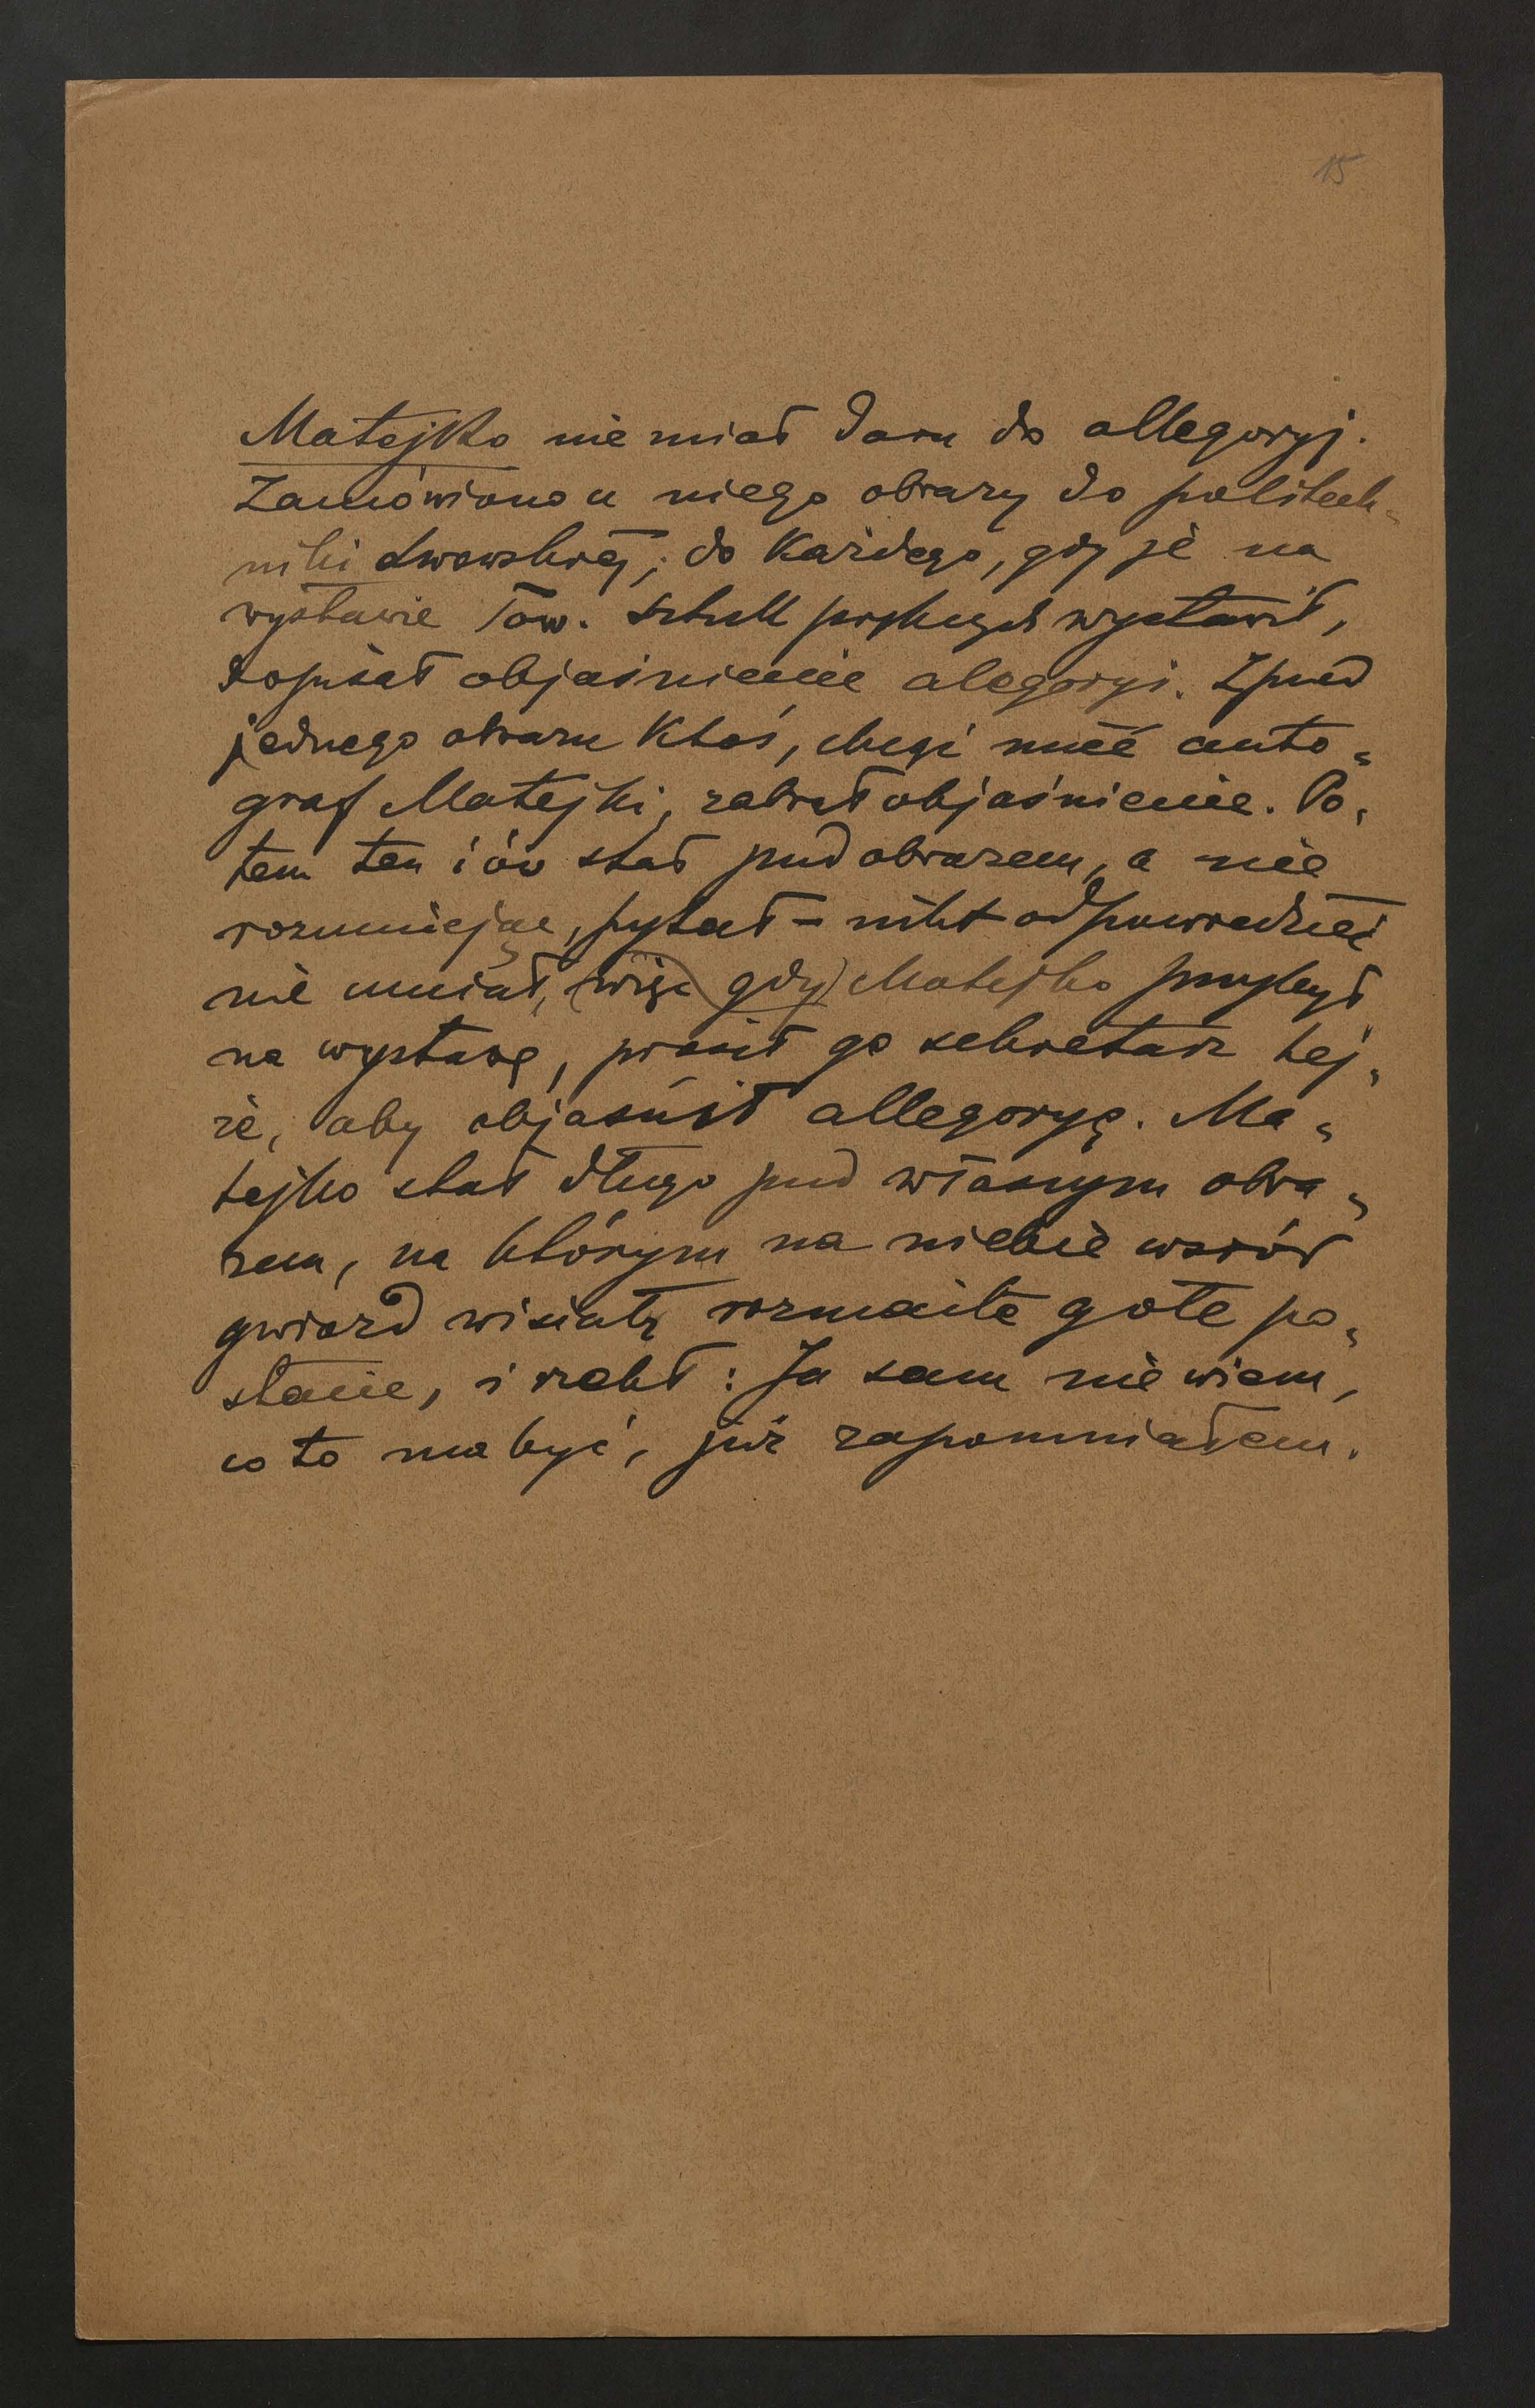 15
Matejko nie miał daru do allegoryj.
Zamówiono u niego obrazy do politech„
niki Lwowskiej; do każdego, gdy je na
wystawie Tow. Sztuk pięknych wystawił,
dopisał objaśnienie alegoryi. Zpod
jednego obrazu ktoś, chcąc mieć auto„
graf Matejki, zabrał objaśnienie. Po„
tem ten i ów stał pod obrazem, a nie
rozumiejąc, pytał – nikt odpowiedzieć
nie umiał, (więc gdy) Matejko przybył
na wystawę, prosił go sekretarz tej„
że, aby objaśnił allegoryę. Ma„
tejko stał długo pod własnym obra„
zem, na którym na niebie wśród
gwiazd wisiały rozmaite gołe po„
stacie, i rzekł: Ja sam nie wiem,
co to ma być, już zapomniałem.